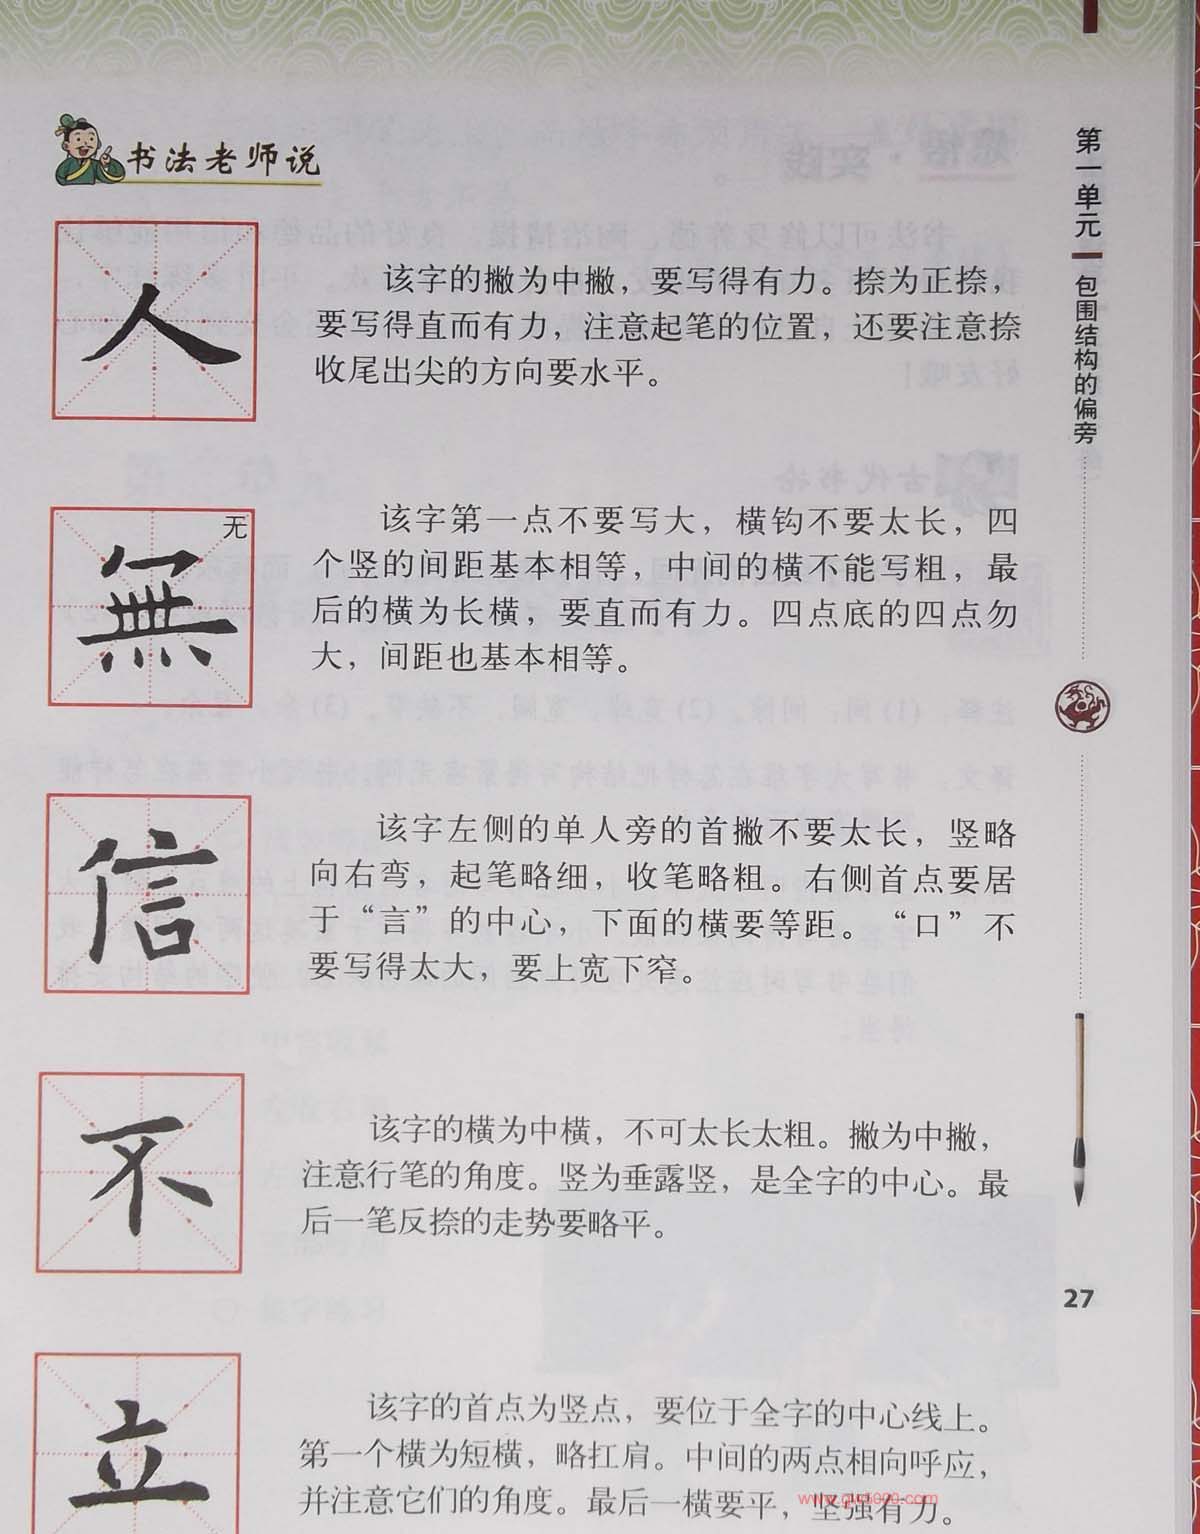 书法老师说
人
该字的撇为中撇，要写得有力。捺为正捺，
要写得直而有力，注意起笔的位置，还要注意捺
收尾出尖的方向要水平。
無
无
该字第一点不要写大，横钩不要太长，四
个竖的间距基本相等，中间的横不能写粗，最
后的横为长横，要直而有力。四点底的四点勿
大，间距也基本相等。
信
该字左侧的单人旁的首撇不要太长，竖略
向右弯，起笔略细，收笔略粗。右侧首点要居
于“言”的中心，下面的横要等距。“口”不
要写得太大，要上宽下窄。
不
该字的横为中横，不可太长太粗。撇为中撇，
注意行笔的角度。竖为垂露竖，是全字的中心。最
后一笔反捺的走势要略平。
立
该字的首点为竖点，要位于全字的中心线上。
第一个横为短横，略扛肩。中间的两点相向呼应，
并注意它们的角度。最后一横要平，坚强有力。
第一单元
包围结构的偏旁
27